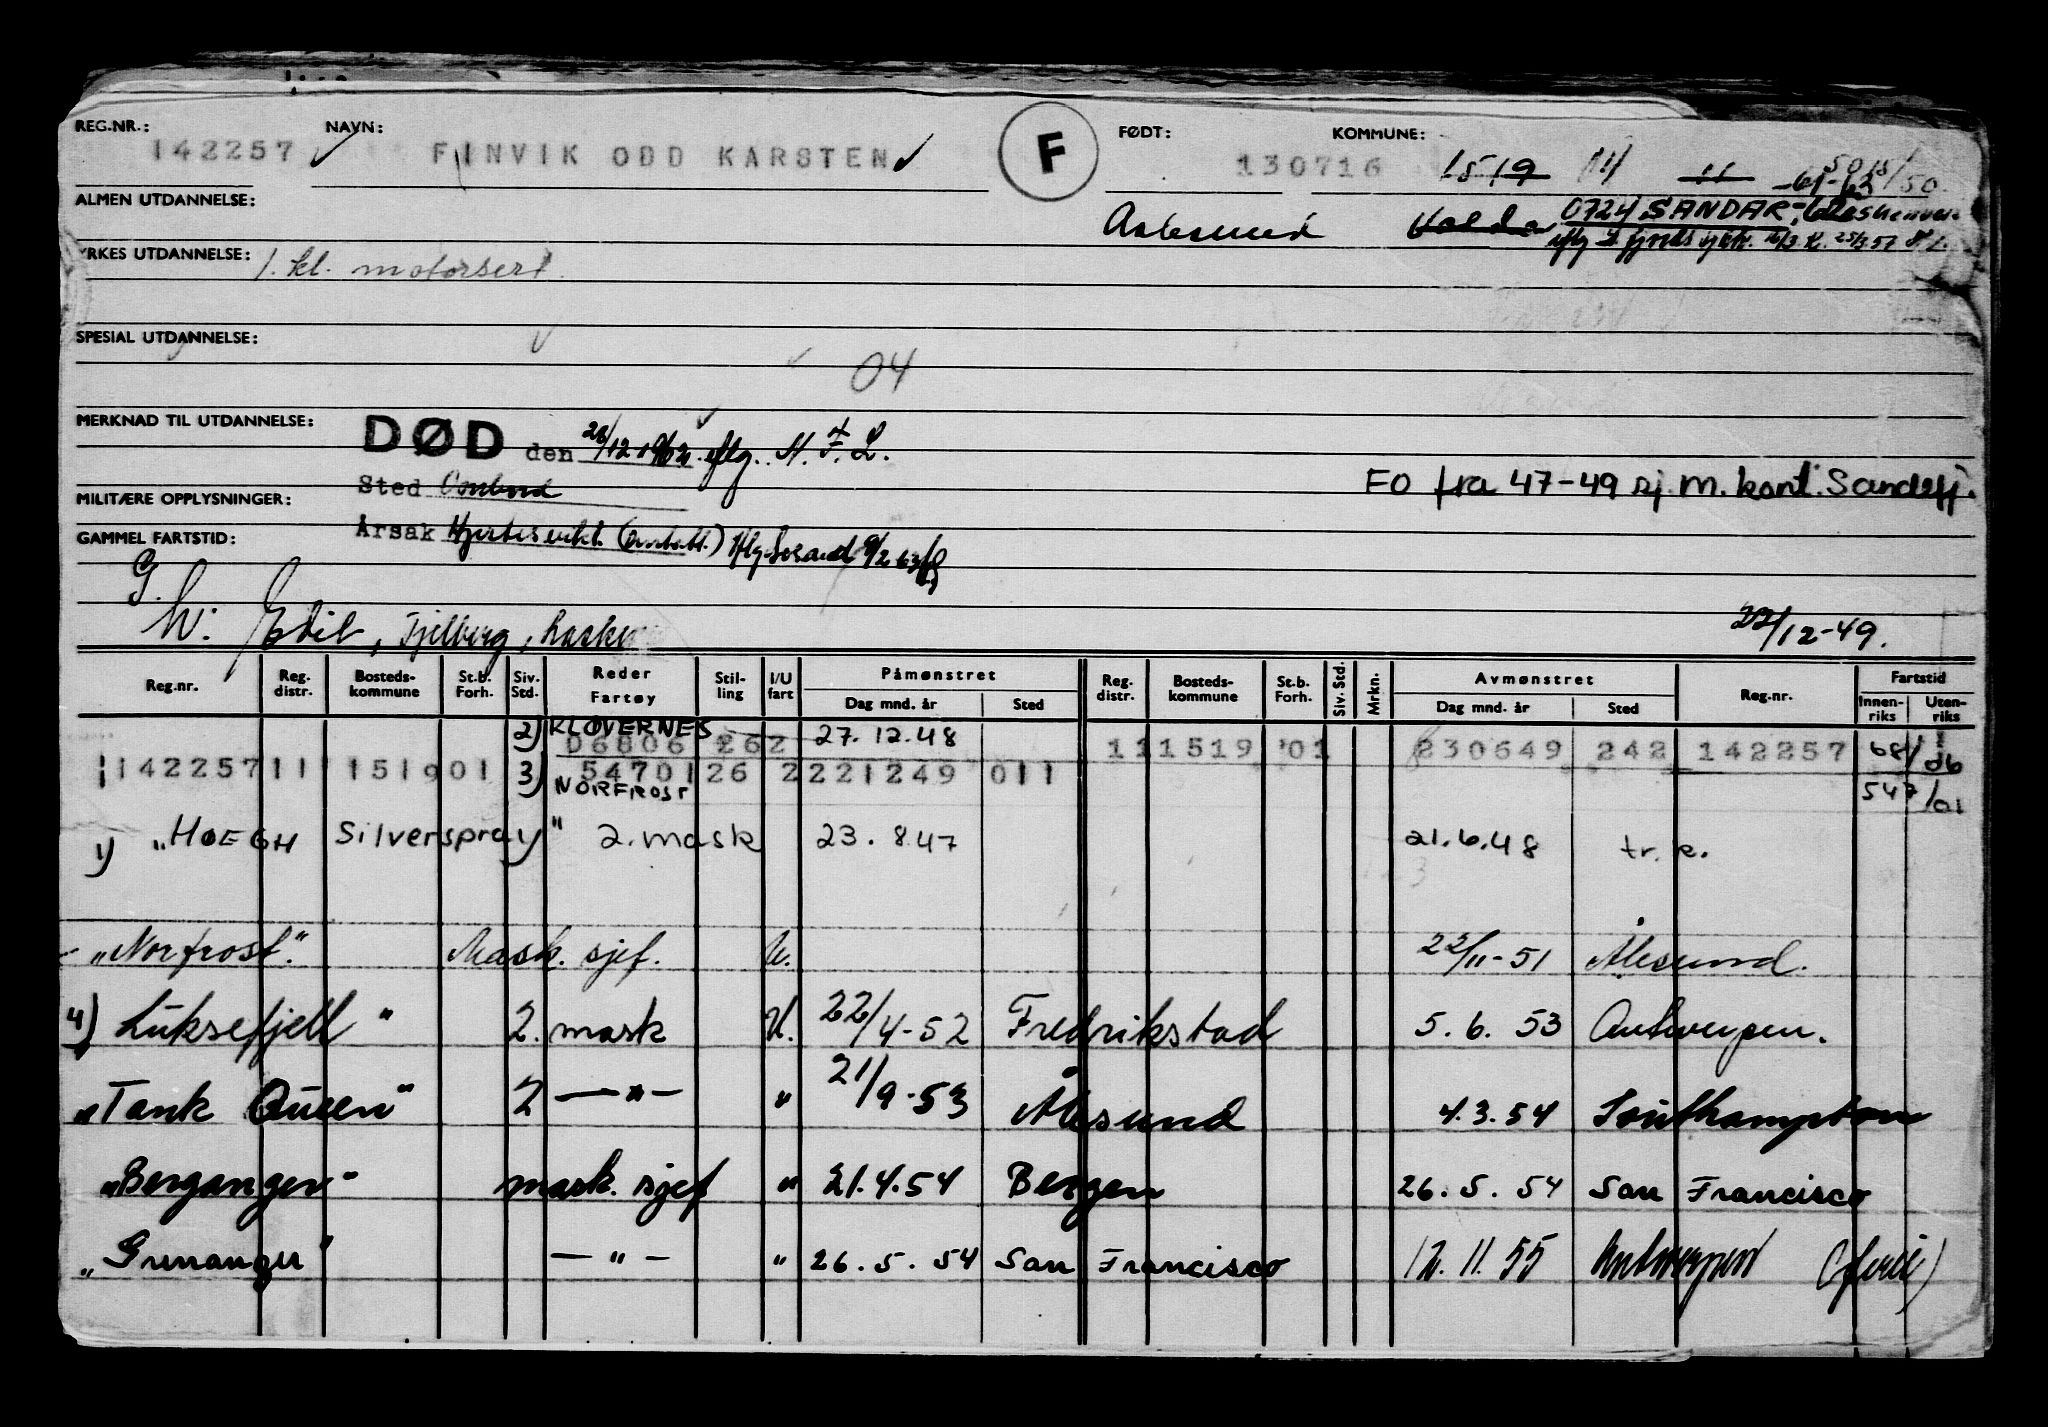 REG.NR.: NAVN: F FØDT: KOMMUNE:
142257 FINVIK ODD KARSTEN 130716 1519 11 50
ALMEN UTDANNELSE:
Aalesund Volda 0724 SANDAR
YRKES UTDANNELSE: 1. kl. motorsert.
SPESIAL UTDANNELSE:
04
MERKNAD TIL UTDANNELSE:
DØD den 28/12-1962 iflg.
EO fra 47-49 sj. m. kont. Sandefj.
MILITÆRE OPPLYSNINGER: Sted Ombord
GAMMEL FARTSTID: Årsak Hjertesvikt
G.
W: Edil, Fjelberg, 22/12-49.
Reg.nr. Reg. distr. Bosteds- kommune St.b. Forh. Siv. Std. Reder Fartøy Stil- ling I/U fart Påmønstret Dag mnd. år Sted Reg. distr. Bosteds- kommune St.b. Forh. Siv. Std. Mrkn. Avmønstret Dag mnd. år Sted Reg.nr. Fartstid Innen- riks Uten- riks
2) KLØVERNES 27.12.48
D6806 262 111519 01 230649 242 142257 68/06
142257 11 1519 01 3) 54701 26 2 221249 011 547/01
NORFROST
1) "HOEGH Silverspray" 2. mask 23. 8 47 21.6.48 tr. k.
- "Norfrost". Mask. sjef. U. 22/11-51 Ålesund.
4) Luksefjell " 2. mask U. 22/4-52 Fredrikstad 5. 6. 53 Antwerpen.
"Tank Queen" 2 —"— " 21/9-53 Ålesund 4.3.54 Southampton
"Berganger" mask. sjef " 21.4.54 Bergen 26. 5. 54 San Francisco
"Grenanger" —"— " 26. 5. 54 San Francisco 12.11.55 Antwerpen (ferie)